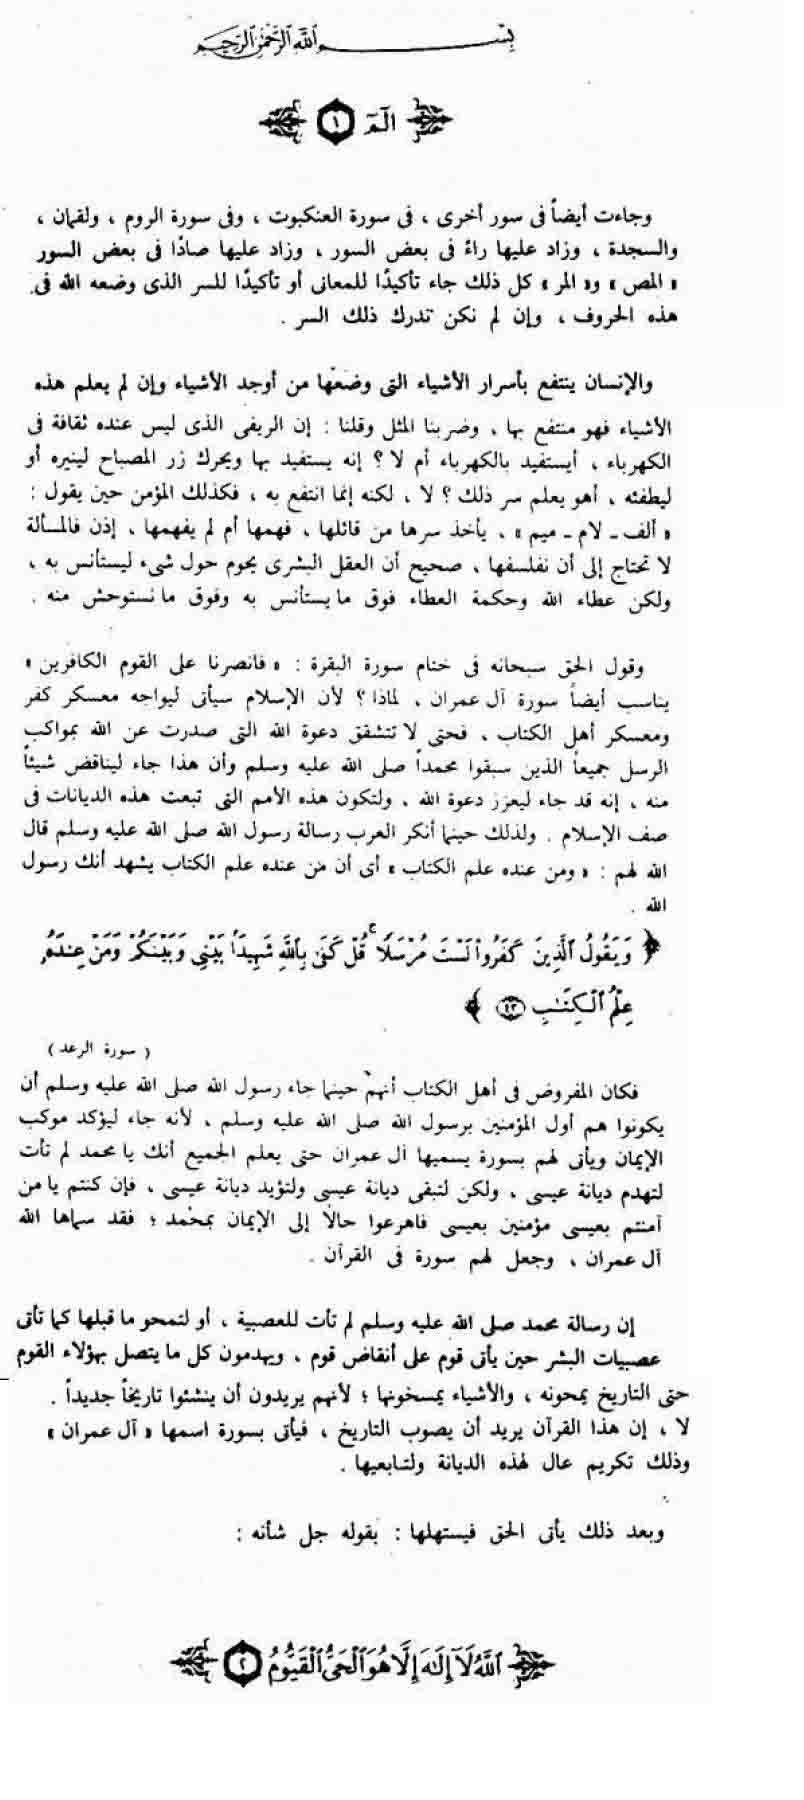 بِسْمِ ٱللَّهِ ٱلرَّحْمَٰنِ ٱلرَّحِيمِ
الٓمٓ ١
وجاءت أيضاً فى سور أخرى ، فى سورة العنكبوت ، وفى سورة الروم ، ولقمان ،
والسجدة ، وزاد عليها راءً فى بعض السور ، وزاد عليها صادًا فى بعض السور
« المص » و« المر » كل ذلك جاء تأكيدًا للمعانى أو تأكيدًا للسر الذى وضعه الله فى
هذه الحروف ، وإن لم نكن ندرك ذلك السر .
والإنسان ينتفع بأسرار الأشياء التى وضعها من أوجد الأشياء وإن لم يعلم هذه
الأشياء فهو منتفع بها ، وضربنا المثل وقلنا : إن الريفى الذى ليس عنده ثقافة فى
الكهرباء ، أيستفيد بالكهرباء أم لا ؟ إنه يستفيد بها ويحرك زر المصباح لينيره أو
ليطفئه ، أهو يعلم سر ذلك ؟ لا ، لكنه إنما انتفع به ، فكذلك المؤمن حين يقول :
« ألف ـ لام ـ ميم » ، يأخذ سرها من قائلها ، فهمها أم لم يفهمها ، إذن فالمسألة
لا تحتاج إلى أن نفلسفها ، صحيح أن العقل البشرى يحوم حول شىء ليستأنس به ،
ولكن عطاء الله وحكمة العطاء فوق ما يستأنس به وفوق ما نستوحش منه .
وقول الحق سبحانه فى ختام سورة البقرة : « فانصرنا على القوم الكافرين »
يناسب أيضاً سورة آل عمران ، لماذا ؟ لأن الإسلام سيأتى ليواجه معسكر كفر
ومعسكر أهل الكتاب ، فحتى لا تتشقق دعوة الله التى صدرت عن الله بمواكب
الرسل جميعاً الذين سبقوا محمداً صلى الله عليه وسلم وأن هذا جاء ليناقض شيئاً
منه ، إنه قد جاء ليعزز دعوة الله ، ولتكون هذه الأمم التى تبعت هذه الديانات فى
صف الإسلام . ولذلك حينما أنكر العرب رسالة رسول الله صلى الله عليه وسلم قال
الله لهم : « ومن عنده علم الكتاب » أى أن من عنده علم الكتاب يشهد أنك رسول
الله .
﴿ وَيَقُولُ ٱلَّذِينَ كَفَرُوا۟ لَسْتَ مُرْسَلًا ۚ قُلْ كَفَىٰ بِٱللَّهِ شَهِيدًۢا بَيْنِى وَبَيْنَكُمْ وَمَنْ عِندَهُۥ
عِلْمُ ٱلْكِتَـٰبِ ٤٣ ﴾
( سورة الرعد )
فكان المفروض فى أهل الكتاب أنهم حينما جاء رسول الله صلى الله عليه وسلم أن
يكونوا هم أول المؤمنين برسول الله صلى الله عليه وسلم ، لأنه جاء ليؤكد موكب
الإيمان ويأتى لهم بسورة يسميها آل عمران حتى يعلم الجميع أنك يا محمد لم تأت
لتهدم ديانة عيسى ، ولكن لتبقى ديانة عيسى ولتؤيد ديانة عيسى ، فإن كنتم يا من
آمنتم بعيسى مؤمنين بعيسى فاهرعوا حالًا إلى الإيمان بمحمد ؛ فقد سماها الله
آل عمران ، وجعل لهم سورة فى القرآن .
إن رسالة محمد صلى الله عليه وسلم لم تأت للعصبية ، أو لتمحو ما قبلها كما تأتى
عصبيات البشر حين يأتى قوم على أنقاض قوم ، ويهدمون كل ما يتصل بهؤلاء القوم
حتى التاريخ يمحونه ، والأشياء يمسخونها ؛ لأنهم يريدون أن ينشئوا تاريخاً جديداً .
لا ، إن هذا القرآن يريد أن يصوب التاريخ ، فيأتى بسورة اسمها « آل عمران »
وذلك تكريم عال لهذه الديانة ولتابعيها .
وبعد ذلك يأتى الحق فيستهلها : بقوله جل شأنه :
ٱللَّهُ لَآ إِلَـٰهَ إِلَّا هُوَ ٱلْحَىُّ ٱلْقَيُّومُ ٢